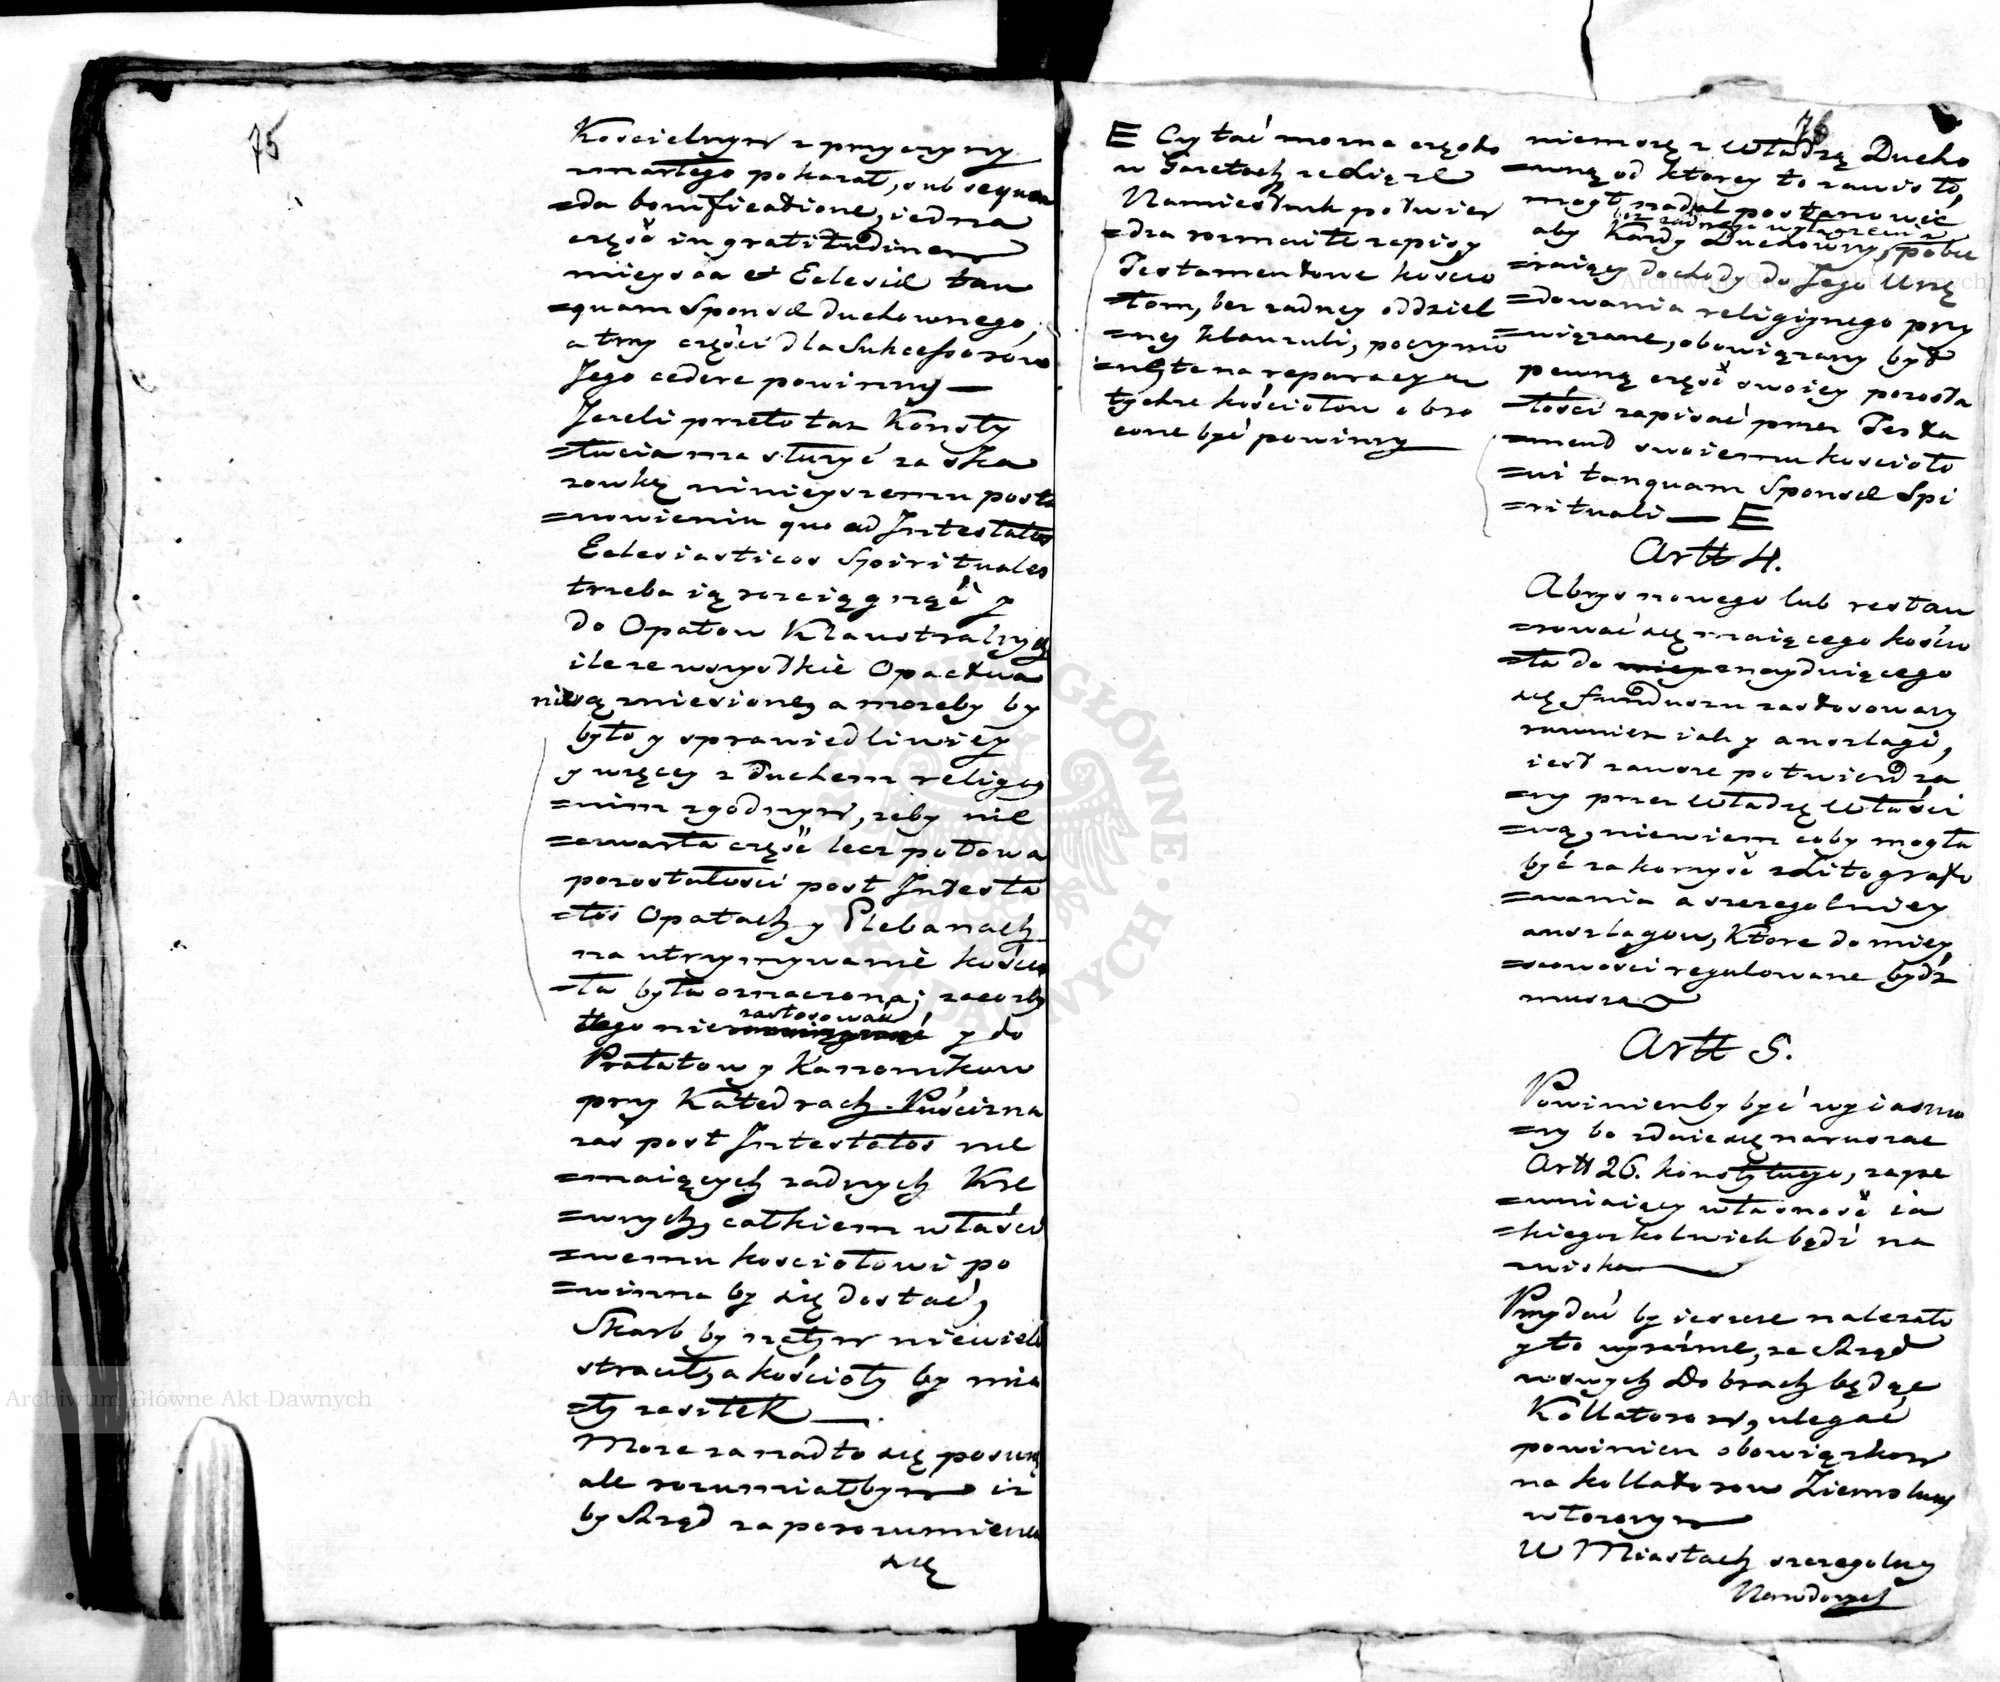 75
Koscielnym z przyczyny
zmarłego pokazał, sub sequen
=da bonificatione, iedna
część in gratitudinem
mieysca et Eclesiæ tan
=quam Sponsæ duchownego,
a trzy części dla Sukcessorów
Jego cedere powinny —
Jezeli przeto taz Konsty
=tucia ma służyć za ska
zowkę ninieyszemu posta
=nowieniu quo ad Intestatos
Eclesiasticos Spirituales
trzeba ią rozciągnąć y
do Opatow Klaustralnych
ile ze wszystkie Opactwa
niesą zniesione, a mozeby by
było y sprawiedliwiey
y więcey z duchem religiy
=nim zgodnym, zeby nie
=czwarta część lecz połowa
pozostałosci post Intesta
=tos Opatach y Plebanach
na utrzymywanie kościo
=ła była oznaczona; zaco zby
tego nie zastosować y do
Prałatow y Kanonikow
przy Katedrach. Puścizna
zaś post Intestatos nie
=maiących zadnych Kre
=wnych, całkiem właści
=wemu kosciołowi po
=winna by się dostać,
Skarb by na tym niewiele
stracił, a kościoły by mia
=ły zasiłek —.
Moze zanadto się posunę
ale rozumiałbym iz
by Rząd zaporozumieniem
się
76
E Czytać mozna często
w Gazetach ze Xiąze
Namiestnik potwier
=dza rozmaite zapisy
Testamentowe kościo
=łom, bez zadney oddziel
=ney klauzuli, poczynio
=ne, te na reparacye
tychze kościołow obro
cone być powinny —
niem się z Władzą Ducho
=wną od ktorey to zawisło,
mogł nadal postanowić
bez zadnego wyłączenia
aby Kazdy Duchowny, pobie
=raiący dochody do Jego Urzę
=dowania religiynego przy
=wiązane, obowiązany był
pewną część swoiey pozosta
=łości zapisać przez Testa
=ment swoiemu koscioło
=wi tanquam Sponsæ Spi
=rituali — E
Artt 4.
Abrys nowego lub restau
=rować się maiącego kościo
=ła do znayduiącego
się funduszu zastosowany
rownież iak y anszlagi,
iest zawsze potwierdza
=ny przez Władzę Właści
=wą, niewiem coby mogła
być za korzyść z Litografo
=wania a szczegolniey
anszlagow, Które do miey
=scowości regulowane bydź
muszą
Artt 5.
Powinienby być wyiasnio
=ny bo zdaie się naruszać
Artt 26. konstytucyi, zape
=wniaiący własność ia
=kiegoz kolwiek bądź na
zwiska
Przydać by ieszcze nalezało
y to wyraznie, ze Rząd
w swych Dobrach będąc
Kollatorem, ulegać
powinien obowiązkom
na kollatorow Ziemskich
włozonym
W Miastach szczegolniey
Narodowych
ARCHIWUM GŁÓWNE AKT DAWNYCH
Archiwum Główne Akt Dawnych
Archiwum Główne Akt Dawnych